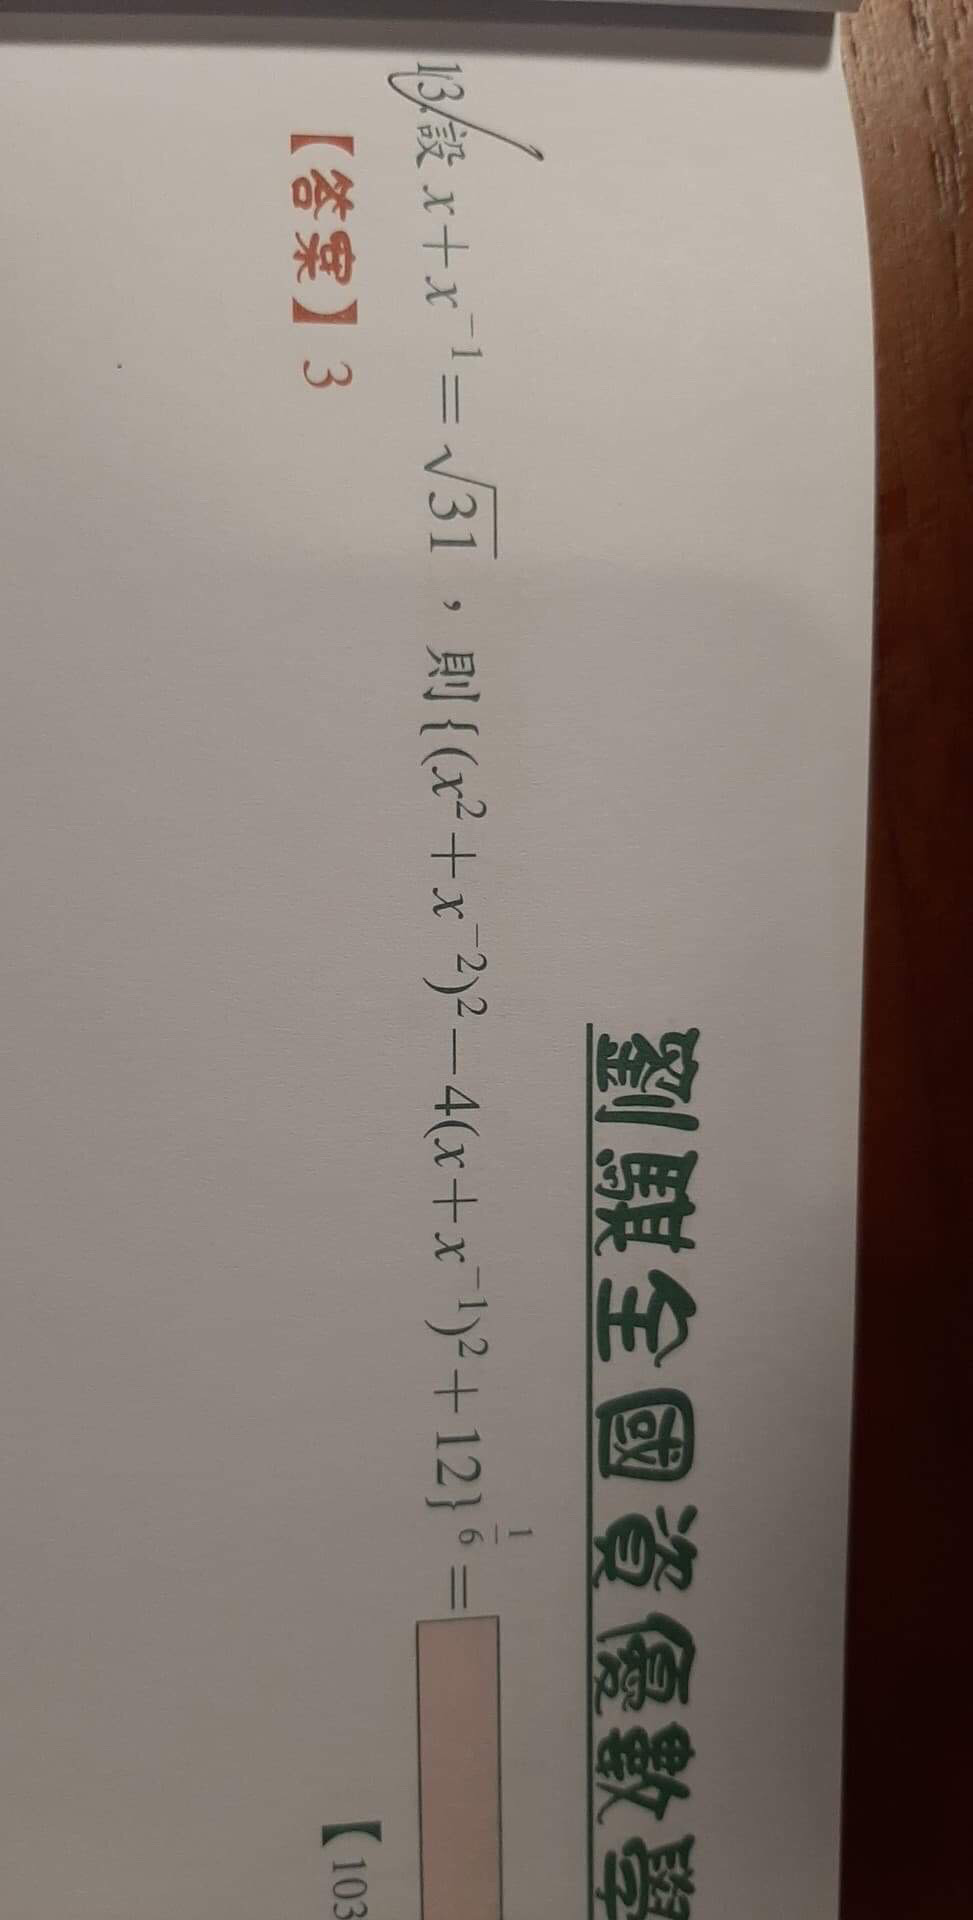 劉騏全國資優數學
13.設 x+x⁻¹=√31，則{(x²+x⁻²)²−4(x+x⁻¹)²+12}^(1/6)=
【103
【答案】3